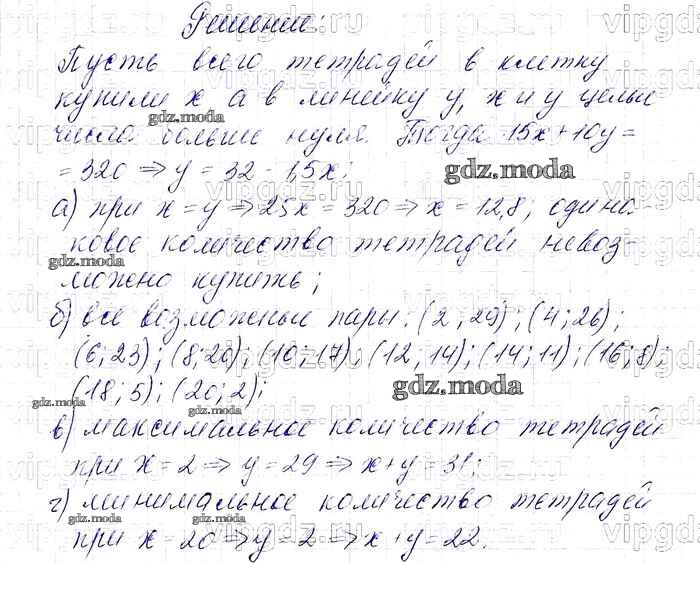 Решение:
Пусть всего тетрадей в клетку
купили x а в линейку y, x и y целые
числа больше нуля. Тогда 15x+10y=
=320 ⇒ y = 32 - 1,5x;
а) при x = y ⇒ 25x = 320 ⇒ x = 12,8; одина-
ковое количество тетрадей невоз-
можно купить;
б) все возможные пары: (2; 29); (4; 26);
(6; 23); (8; 20); (10; 17); (12; 14); (14; 11); (16; 8);
(18; 5); (20; 2);
в) максимальное количество тетрадей
при x = 2 ⇒ y = 29 ⇒ x+y = 31;
г) минимальное количество тетрадей
при x = 20 ⇒ y = 2 ⇒ x+y = 22.
gdz.moda
gdz.moda
gdz.moda
gdz.moda
gdz.moda
gdz.moda
gdz.moda
gdz.moda
vipgdz.ru